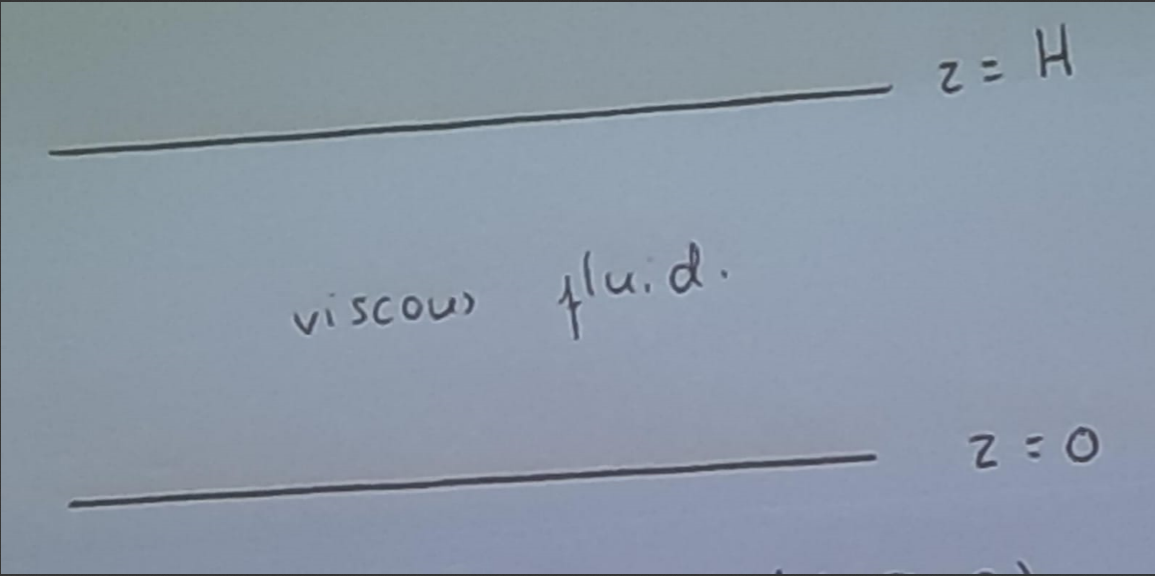 z = H
viscous fluid.
z = 0